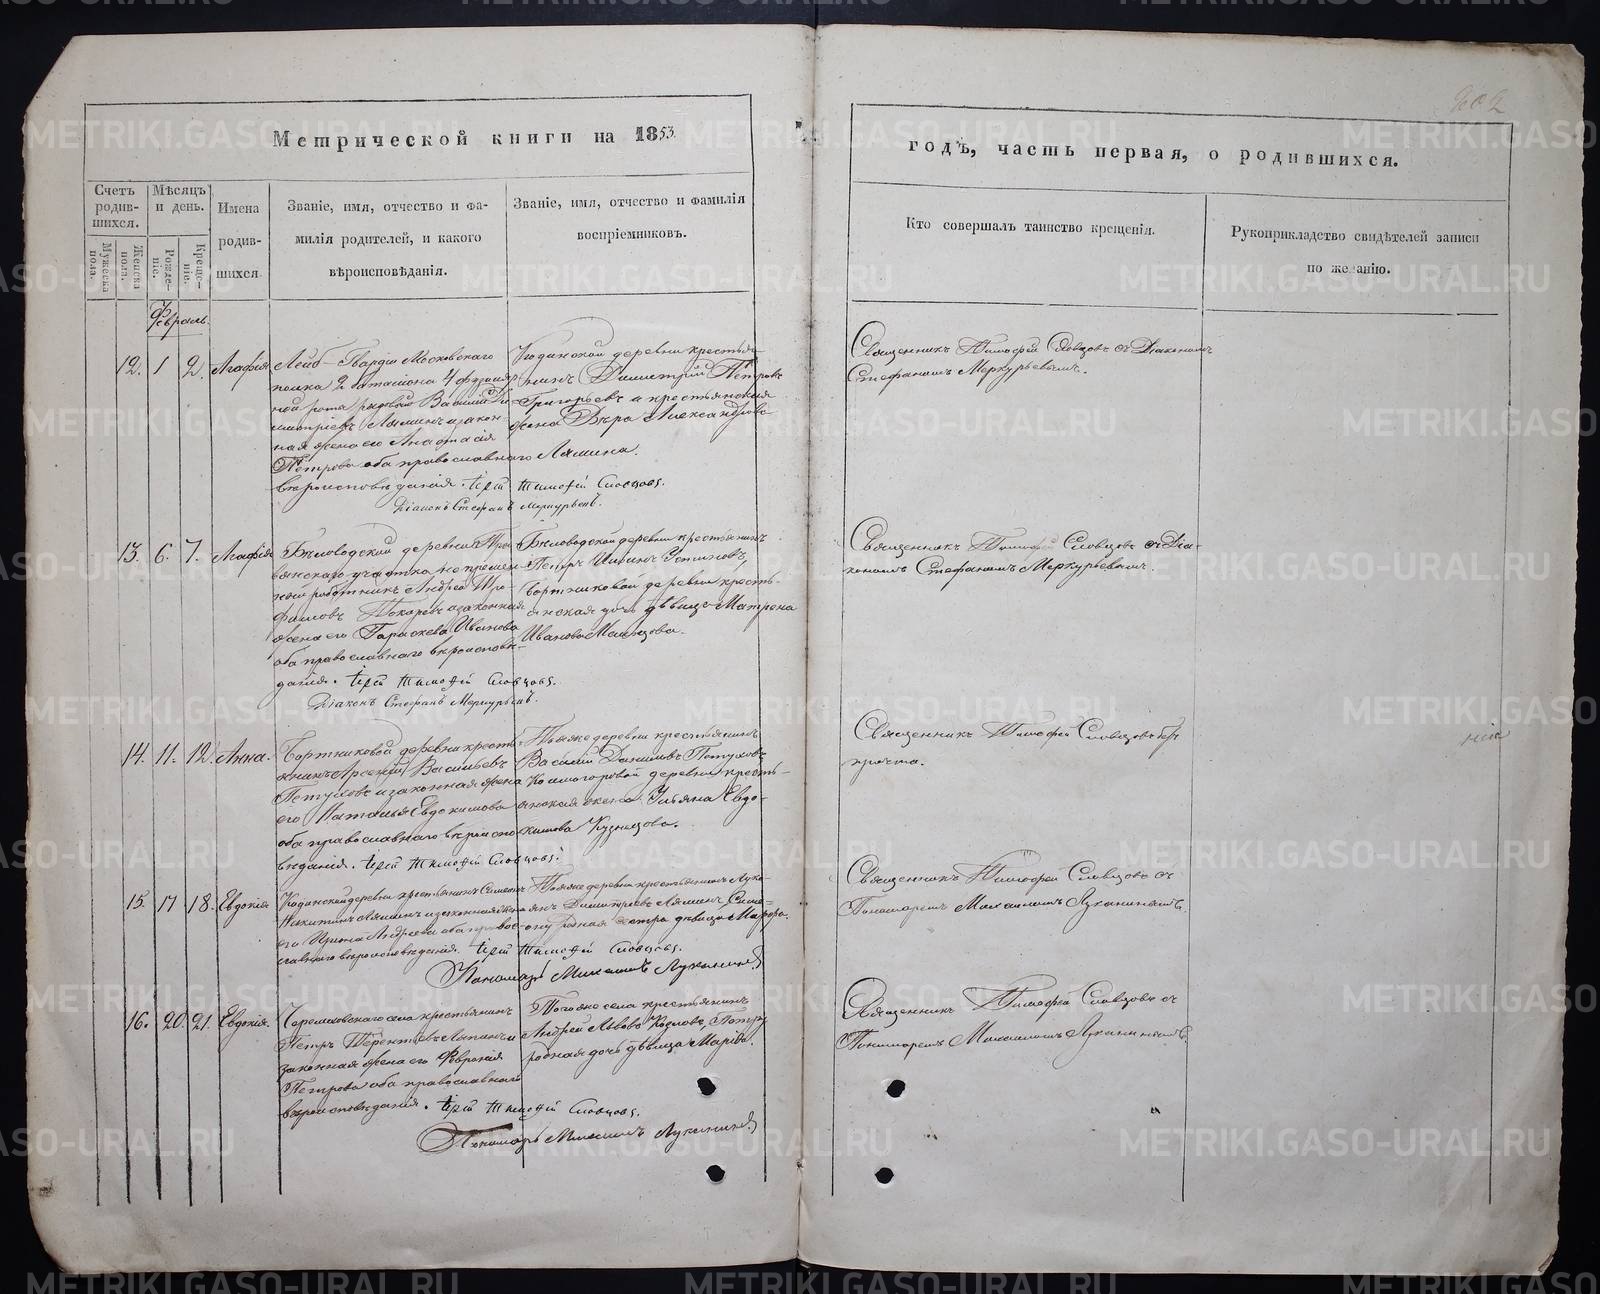 Метрической книги на 1853
годъ, часть первая, о родившихся.
Счетъ родив-шихся.
Мѣсяцъ и день.
Имена родив-шихся
Званіе, имя, отчество и фа-
милія родителей, и какого
вѣроисповѣданія.
Званіе, имя, отчество и фамилія
воспріемниковъ.
Кто совершалъ таинство крещенія.
Рукоприкладство свидѣтелей записи
по желанію.
Мужеска пола.
Женска пола.
Рожде-ніе.
Креще-ніе.
Февраль.
12. 1 2. Агафія
Лейб-Гвардіи Московскаго
полка 2 баталіона 4
рядовой Василій Ди-
митріевъ Ляминъ и закон-
ная жена его Анастасія
Петрова оба православнаго
вѣроисповѣданія. Іерей Тимофей Словцовъ.
Діаконъ Стефанъ Меркурьевъ.
деревни крестья-
нинъ Димитрій Петровъ
Григорьевъ и крестьянская
жена Вѣра Александрова
Лямина.
Священникъ Тимофей Словцовъ съ Діакономъ
Стефаномъ Меркурьевымъ.
13. 6. 7. Агафія
Бѣловодской деревни
участка
работникъ Андрей Тро-
фимовъ Токаревъ и законная
жена его Параскева Иванова
оба православнаго вѣроисповѣ-
данія. Іерей Тимофей Словцовъ.
Діаконъ Стефанъ Меркурьевъ.
Бѣловодской деревни крестьянинъ
Петръ Устиновъ,
Бортниковой деревни кресть-
янская дочь дѣвица Матрена
Иванова
Священникъ Тимофей Словцовъ съ Діа-
кономъ Стефаномъ Меркурьевымъ.
14. 11. 12. Анна.
Бортниковой деревни кресть-
янинъ Арсеній Васильевъ
Петуховъ и законная жена
его Наталья Евдокимова
оба православнаго вѣроиспо-
вѣданія. Іерей Тимофей Словцовъ.
Тояже деревни крестьянинъ
Василій Даниловъ Петуховъ
Комогоровой деревни кресть-
янская жена Ульяна Евдо-
кимова Кузнецова.
Священникъ Тимофей Словцовъ безъ
причта.
15. 17 18. Евдокія
деревни крестьянинъ Симеонъ
Никитинъ Ляминъ и законная жена
его Ирина Андреева оба право-
славнаго вѣроисповѣданія. Іерей Тимофей Словцовъ.
Пономарь Михаилъ Луканинъ
Тояже деревни крестьянинъ Лукі-
янъ Димитріевъ Ляминъ, Симе-
ону родная сестра дѣвица Марфа.
Священникъ Тимофей Словцовъ съ
Пономаремъ Михаиломъ Луканинымъ.
16. 20. 21. Евдокія.
села крестьянинъ
Петръ Терентьевъ и
законная жена его Февронія
Петрова оба православнаго
вѣроисповѣданія. Іерей Тимофей Словцовъ.
Пономарь Михаилъ Луканинъ
Тогоже села крестьянинъ
Андрей Львовъ Козловъ, Петру
родная дочь дѣвица Марія.
Священникъ Тимофей Словцовъ съ
Пономаремъ Михаиломъ Луканинымъ.
METRIKI.GASO-URAL.RU